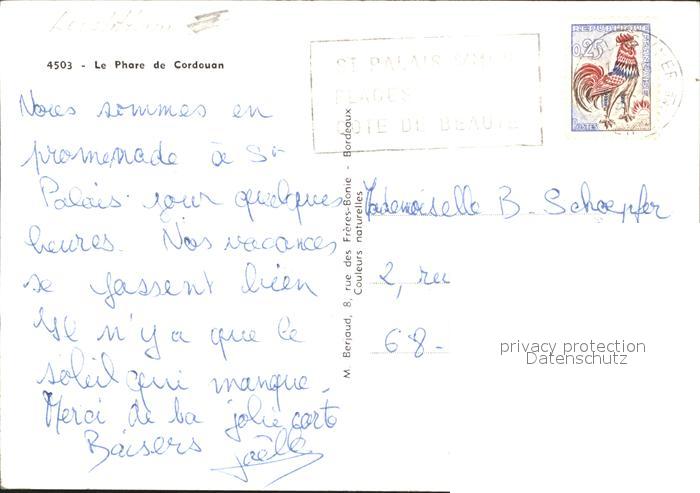 4503 - Le Phare de Cordouan
Nous sommes en
promenade à St
Palais pour quelques
heures. Nos vacances
se passent bien
Il n'y a que le
soleil qui manque.
Merci de ta jolie carte
Baisers Joëlle
M. Berjaud, 8, rue des Frères-Bonie - Bordeaux
Couleurs naturelles
ST PALAIS S/MER
PLAGES
COTE DE BEAUTE
REPUBLIQUE FRANÇAISE
0,25
POSTES
Mademoiselle B. Schaepfer
2, ru
68-
privacy protection
Datenschutz